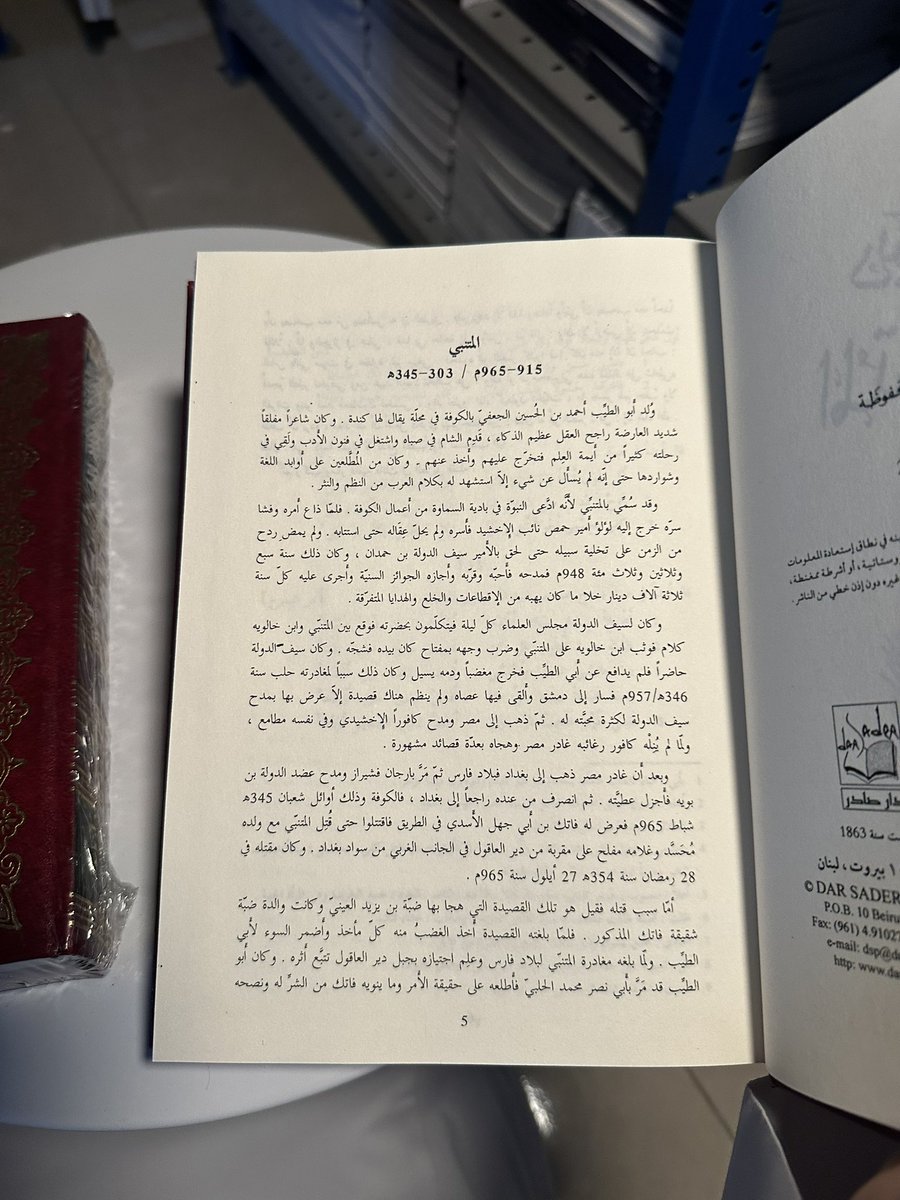 المتنبي
915-965م / 303-345ه
وُلد أبو الطيِّب أحمد بن الحُسين الجعفيّ بالكوفة في محلّة يقال لها كندة . وكان شاعراً مفلقاً
شديد العارضة راجح العقل عظيم الذكاء ، قَدِم الشام في صباه واشتغل في فنون الأدب ولَقِي في
رحلته كثيراً من أيمة العِلم فتخرّج عليهم وأخذ عنهم . وكان من المُطَّلعين على أوابد اللغة
وشواردها حتى إنّه لم يُسأَل عن شيء إلاّ استشهد له بكلام العرب من النظم والنثر .
وقد سُمِّي بالمتنبِّي لأَنَّه ادَّعى النبوّة في بادية السماوة من أعمال الكوفة . فلمّا ذاع أمره وفشا
سرّه خرج إليه لؤلؤ أمير حمص نائب الإخشيد فأسره ولم يحلّ عِقاله حتى استتابه . ولم يمض ردح
من الزمن على تخلية سبيله حتى لحق بالأمير سيف الدولة بن حمدان ، وكان ذلك سنة سبع
وثلاثين وثلاث مئة 948م فمدحه فأحبّه وقرّبه وأجازه الجوائز السنيّة وأجرى عليه كلّ سنة
ثلاثة آلاف دينار خلا ما كان يهبه من الإقطاعات والخلع والهدايا المتفرّقة .
وكان لسيف الدولة مجلس العلماء كلّ ليلة فيتكلّمون بحضرته فوقع بين المتنبّي وابن خالويه
كلام فوثب ابن خالويه على المتنبّي وضرب وجهه بمفتاح كان بيده فشجّه . وكان سيف الدولة
حاضراً فلم يدافع عن أبي الطيِّب فخرج مغضباً ودمه يسيل وكان ذلك سبباً لمغادرته حلب سنة
346ه/957م فسار إلى دمشق وألقى فيها عصاه ولم ينظم هناك قصيدة إلاّ عرض بها بمدح
سيف الدولة لكثرة محبَّته له . ثمّ ذهب إلى مصر ومدح كافوراً الإخشيدي وفي نفسه مطامع ،
ولمّا لم يُنِلْه كافور رغائبه غادر مصر وهجاه بعدّة قصائد مشهورة .
وبعد أن غادر مصر ذهب إلى بغداد فبلاد فارس ثمّ مَرَّ بارجان فشيراز ومدح عضد الدولة بن
بويه فأجزل عطيَّته . ثم انصرف من عنده راجعاً إلى بغداد ، فالكوفة وذلك أوائل شعبان 345ه
شباط 965م فعرض له فاتك بن أبي جهل الأسدي في الطريق فاقتتلوا حتى قُتِل المتنبّي مع ولده
مُحَسَّد وغلامه مفلح على مقربة من دير العاقول في الجانب الغربي من سواد بغداد . وكان مقتله في
28 رمضان سنة 354ه 27 أيلول سنة 965م .
أمّا سبب قتله فقيل هو تلك القصيدة التي هجا بها ضبّة بن يزيد العينيّ وكانت والدة ضبّة
شقيقة فاتك المذكور . فلمّا بلغته القصيدة أخذ الغضبُ منه كلّ مأخذ وأضمر السوء لأبي
الطيِّب . ولمّا بلغه مغادرة المتنبّي لبلاد فارس وعلِم اجتيازه بجبل دير العاقول تتبَّع أثره . وكان أبو
الطيِّب قد مَرَّ بأبي نصر محمد الحلبيّ فأطلعه على حقيقة الأمر وما ينويه فاتك من الشرِّ له ونصحه
5
في نطاق إستعادة المعلومات
أو أشرطة ممغنطة ،
دون إذن خطي من الناشر.
دار صادر
سنة 1863
بيروت ، لبنان
© DAR SADER
P.O.B. 10 Beiru
Fax: (961) 4.91027
e-mail: dsp@da
http: www.da